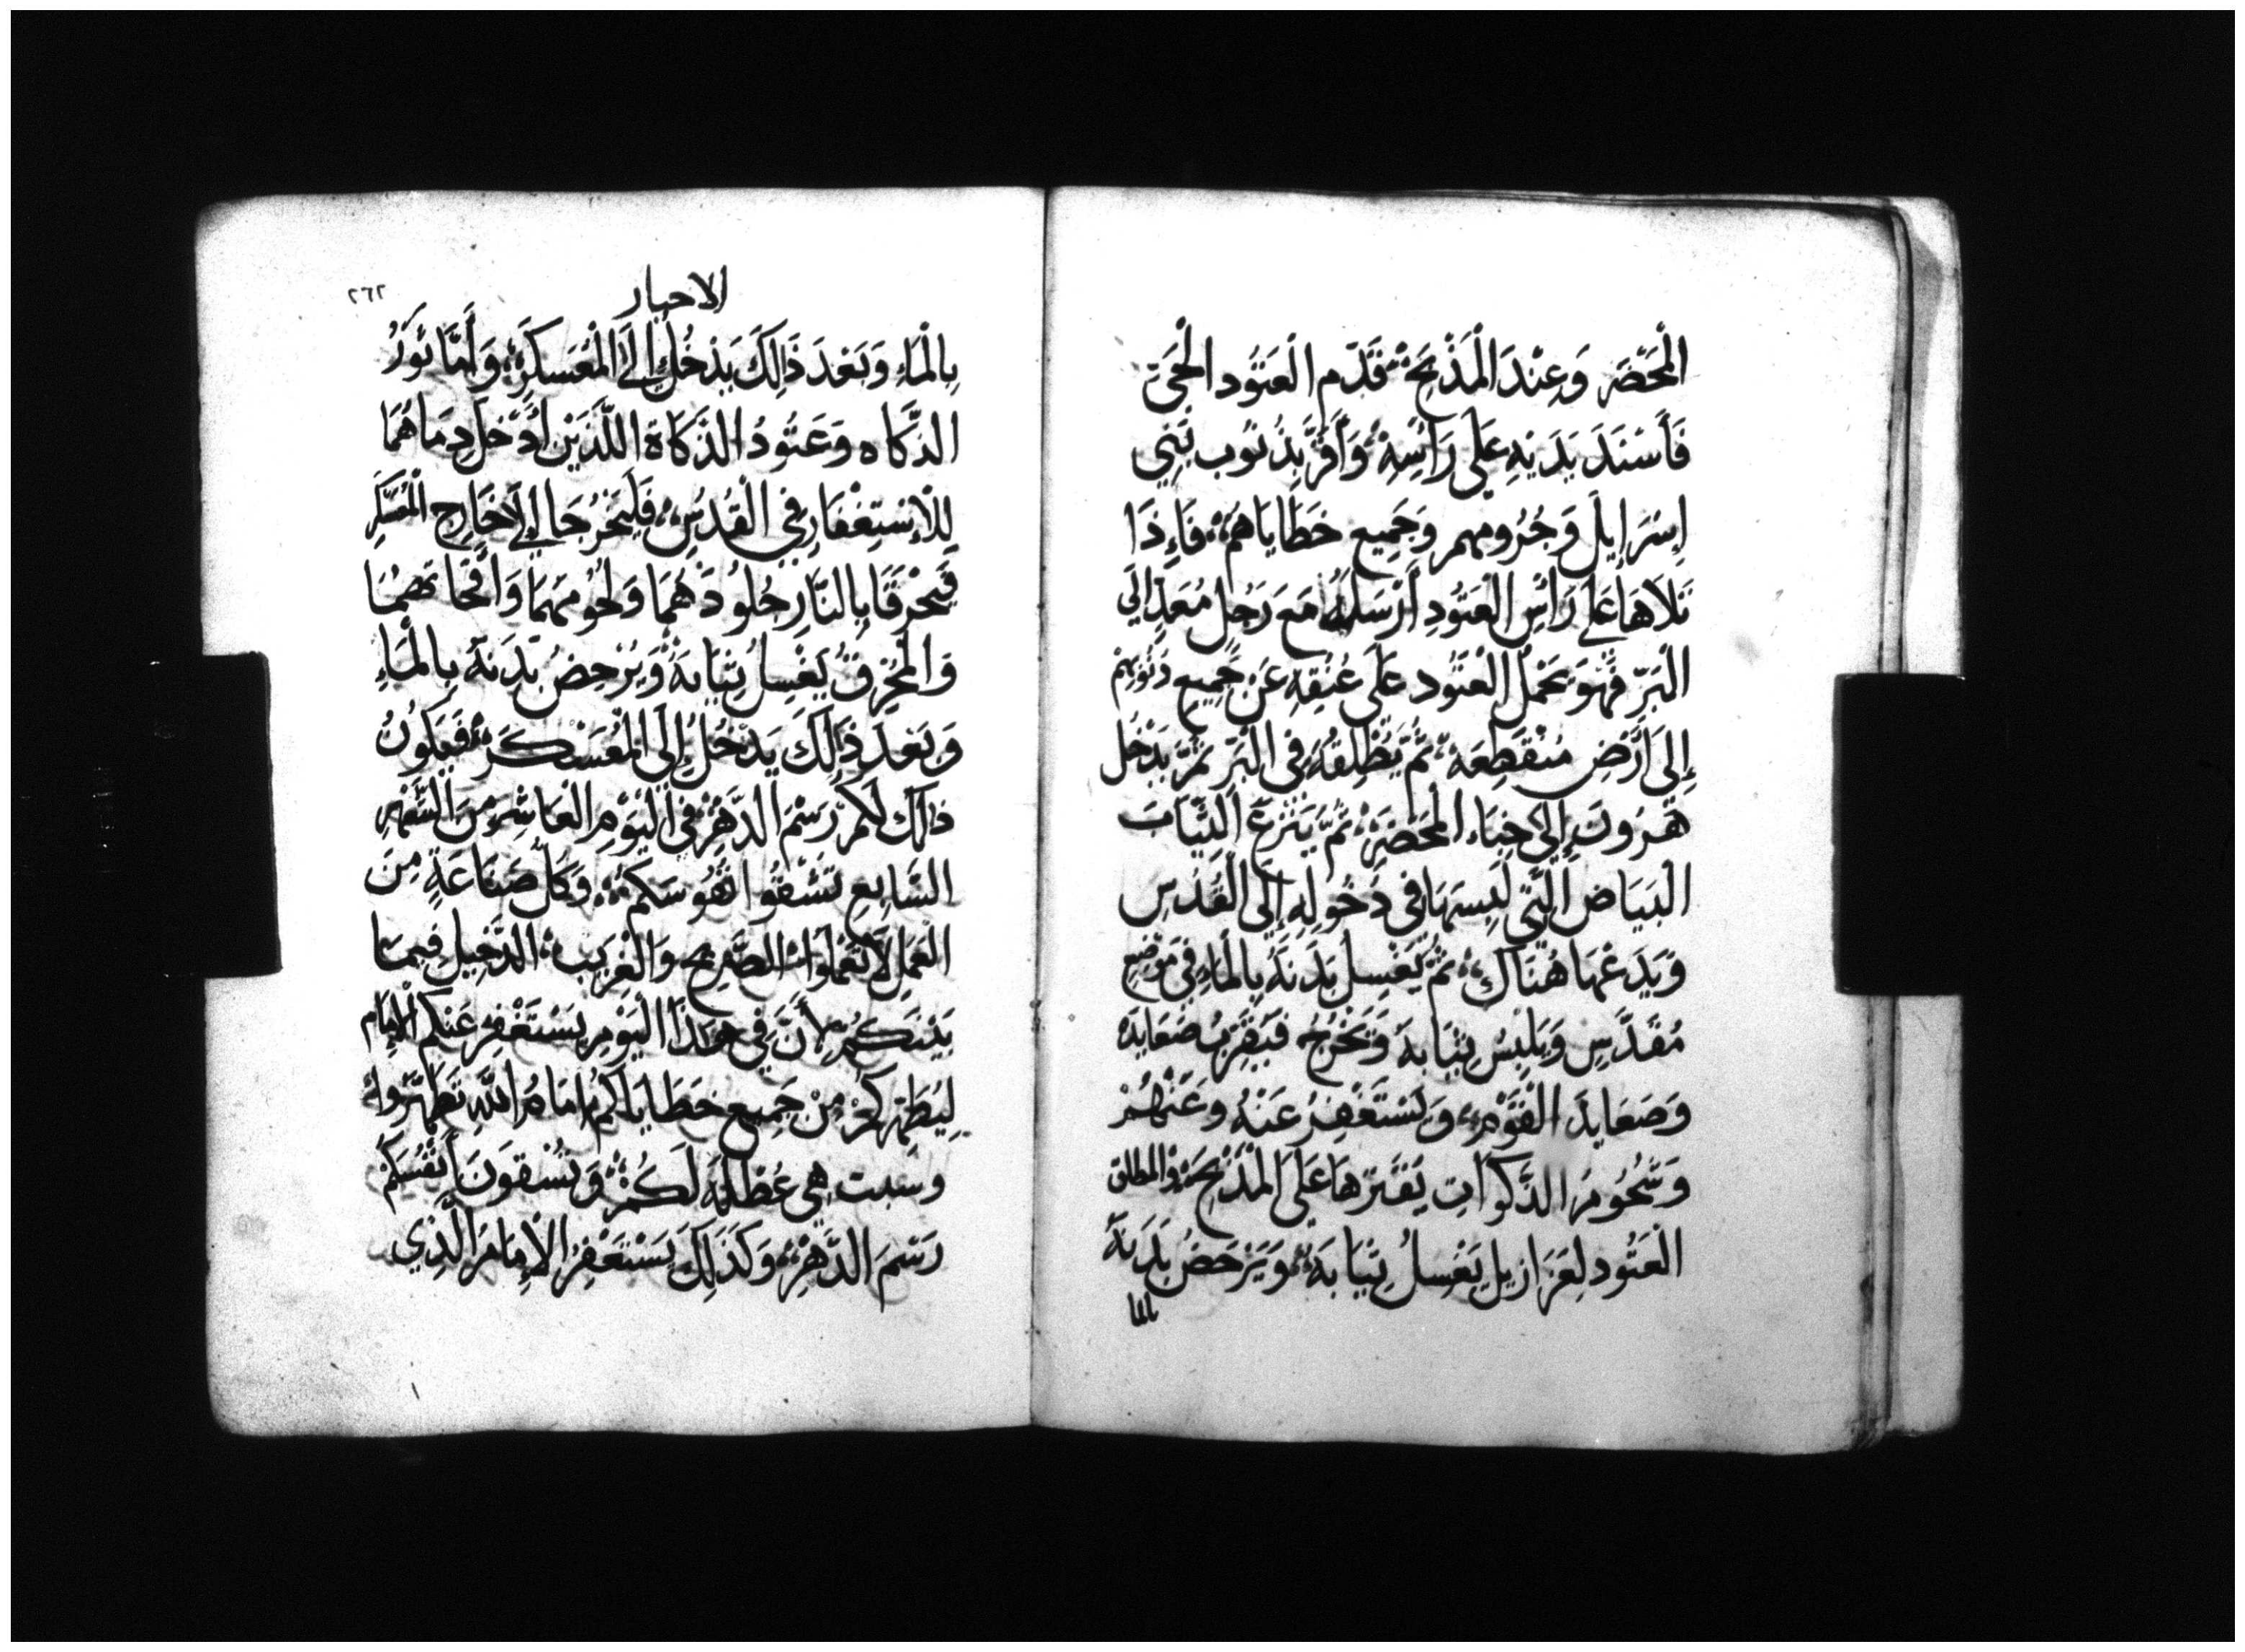 الْمَحْضَر وَعِنْدَ الْمَذْبَحِ ؞ قَدَّم الْعَتُود الْحَيّ
فَأَسْنَدَ يَدَيْهِ عَلَى رَأْسِهِ ؞ وَأَقَرَّ بِذُنُوب بَنِي
إِسْرَايِلَ وَجُرُومهم وَجَمِيع خَطَايَاهُمْ ؞ فَإِذَا
تَلَاهَا عَلَى رَأْسِ الْعَتُودِ أَرْسَلَهُ مَعَ رَجُل مُعَدّ إِلَى
الْبَرّ فَهُوَ يَحْمِل الْعَتُود عَلَى عُنُقِهِ عَنْ جَمِيعِ ذُنُوبِهِمْ
إِلَى أَرْضِ مُنْقَطِعَة ؞ ثُمَّ يُطْلِقُهُ فِي الْبَرّ ثُمَّ يَدْخُل
هَرُون إِلَى خِبَاء الْمَحْضَرِ ؞ ثُمَّ يَنْزَعُ الثِّيَابَ
الْبَيَاض الَّتِي لَبِسَهَا فِي دُخُولِهِ إِلَى الْقُدْسِ
وَيَدَعْهَا هُنَاكَ ؞ ثُمَّ يَغْسِل بَدَنَهُ بِالْمَاءِ فِي مَوْضِعِ
مُقَدَّسِ وَيَلْبِسُ ثِيَابهُ وَيَخْرُجُ فَيُقَرِّبُ صَعَايِدَه
وَصَعَايِدَ الْقَوْمِ ؞ وَيَسْتَغْفِرُ عَنْهُ وَعَنْهُمْ
وَشُحُومُ الذَّكَوَاتِ يُقَتِّرهَا عَلَى الْمَذْبَحِ ؞ وَالمطلق
الْعَتُود لِعَزَازِيل يَغْسِلُ ثِيَابَهُ ؞ وَيَرْحَضُ بَدَنَهُ
بالما
الاحبار
٢٦٢
بِالْمَاءِ وَبَعْدَ ذَالِكَ يَدْخُلُ إِلَى الْمُعَسْكَرِ ؞ وَأَمَّا ثَوْرُ
الذَّكَاه وَعَتُودُ الذَّكَاةِ اللَّذَيْنِ أُدْخِلَ دِمَاهُمَا
لِلْإِسْتِغْفَارِ فِي الْقُدْسِ ؞ فَلْيُخْرُجَا إِلَى خَارِجِ الْمُعَسْكَرِ
فَيُحْرَقَا بِالنَّارِ جُلُودَهُمَا وَلُحُومَهُمَا وَأَفْحَاثهمَا
وَالْمُحْرِقُ يَغْسِلُ ثِيَابَهُ ؞ وَيَرْحِضُ بَدَنَهُ بِالْمَاءِ
وَبَعْدَ ذَالِكَ يَدْخُلُ إِلَى الْمُعَسْكَرِ ؞ فَيَكُونُ
ذالك لَكُمْ رَسْمَ الدَّهْرِ ؞ فِي الْيَوْمِ الْعَاشِرِ مِنَ الشَّهْرِ
السَّابِعِ تَشُقُّوا نُفُوسَكُم ؞ وَكُلُّ صِنَاعَةٍ مِنَ
الْعَمَلِ لَا تَعْمَلُوا ؞ الصَّرِيح وَالْغَرِيب ؞ الدَّخِيل فِيمَا
بَيْنَكُمْ لِأَنَّ فِي هَذَا الْيَوْمِ يَسْتَغْفِرُ عَنْكُم الْإِمَام
لِيُطَهِّرَكُمْ مِنْ جَمِيعِ خَطَايَاكُمْ أَمَامَ اللهِ تَطَهَّرُوا ؞
وسبت هِي عُطْلَةٌ لَكُمْ ؞ وَتَشُقُّونَ أَنْفُسَكُمْ
رَسْمَ الدَّهْرِ ؞ وَكَذَلِكَ يَسْتَغْفِرُ الْإِمَامَ الَّذِي